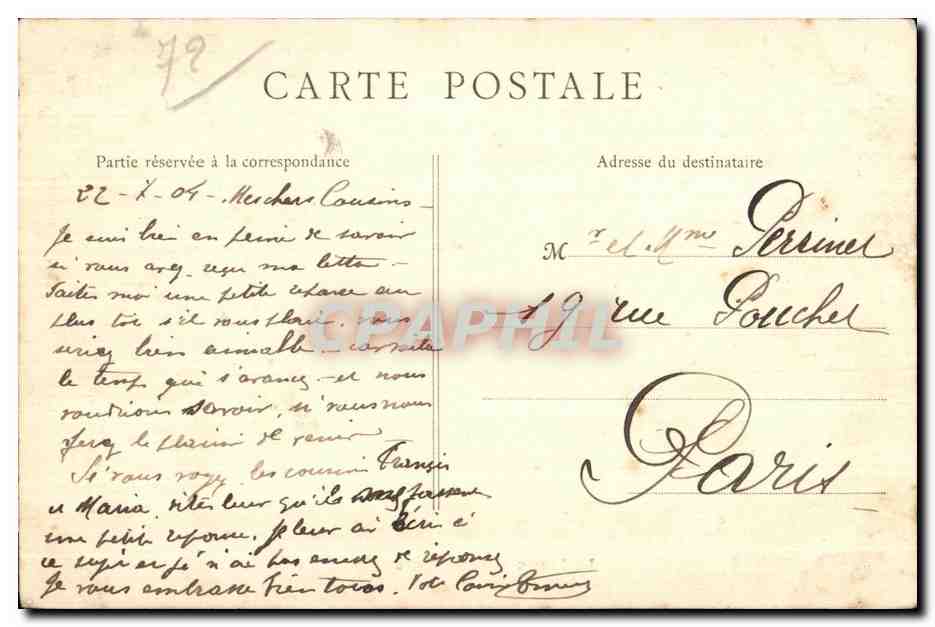 72
CARTE POSTALE
Partie réservée à la correspondance
Adresse du destinataire
22 - X - 04 - Mes chers Cousins -
Je suis bien en peine de savoir
si vous avez reçu ma lettre -
Faites moi une petite reponse au
plus tot s'il vous plait. vous
seriez bien aimable - car voila
le temps qui s'avance - et nous
voudrions savoir, si vous nous
ferez le plaisir de venir
Si vous voyez les cousins François
et Maria, dites leur qu'ils nous fassent
une petite reponse. je leur ai écri à
ce sujet et je n'ai pas encore de réponse
Je vous embrasse bien tous. Votre Cousin
Mr et Mme Perrinet
19 rue Pouchet
Paris
CPAPHIL